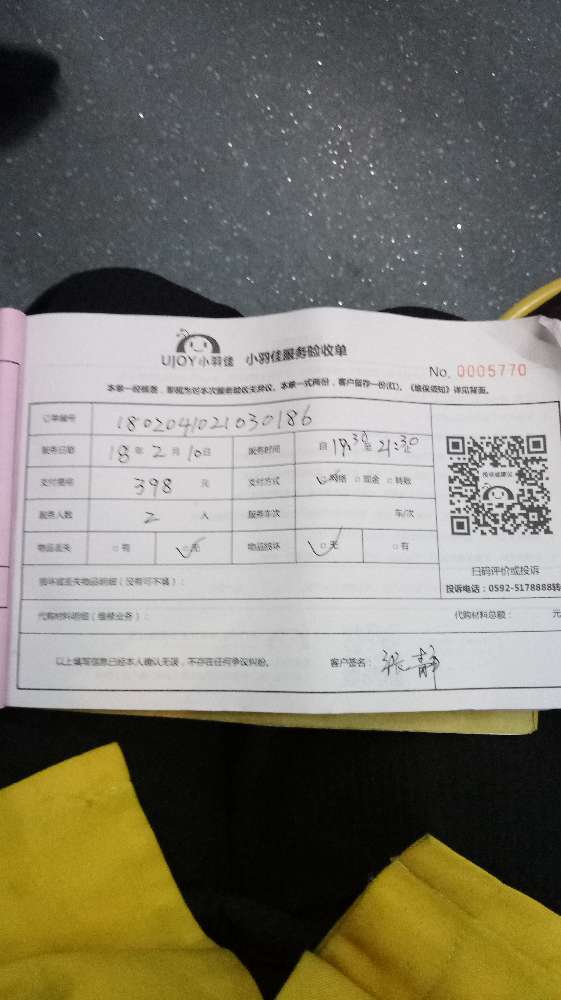 UJOY小羽佳 小羽佳服务验收单
No. 0005770
本单一经核签,即视为对本次服务验收无异议。本单一式两份,客户留存一份(红)。《维保须知》详见背面。
订单编号 1802041021030186
服务日期 18年2月10日 服务时间 自19:30至21:30止
支付费用 398元 支付方式 ☑网络 □现金 □转账
服务人数 2人 服务车次 车/次
物品丢失 □有 ☑无 物品损坏 ☑无 □有
损坏或丢失物品明细(没有可不填):
代购材料明细(维修业务): 代购材料总额: 元
以上填写信息已经本人确认无误,不存在任何争议纠纷。 客户签名:张静
投诉或建议
扫码评价或投诉
投诉电话:0592-5178888转